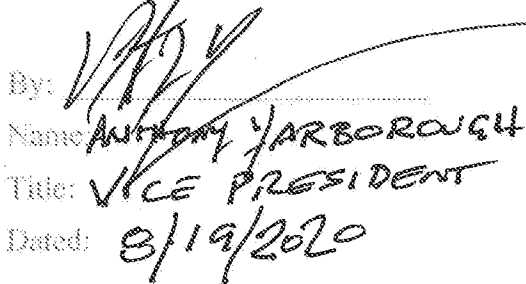 By:
Name: ANTHONY YARBOROUGH
Title: VICE PRESIDENT
Dated: 8/19/2020